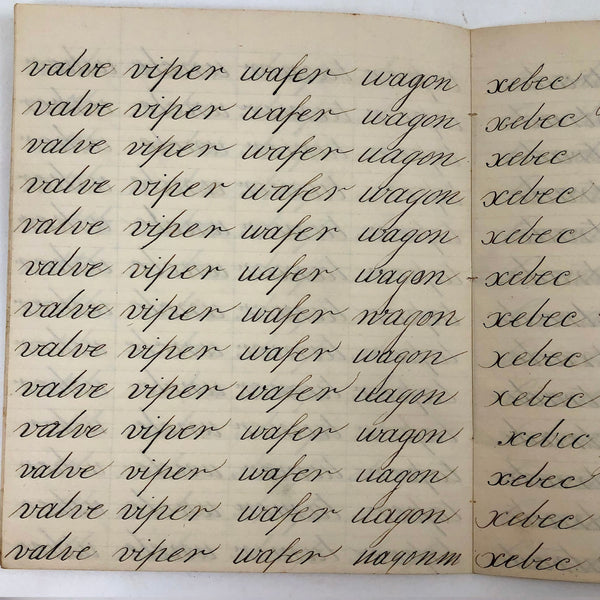 valve viper wafer wagon
valve viper wafer wagon
valve viper wafer uagon
valve viper wafer wagon
valve viper wafer wagon
valve viper uafer wagon
valve viper wafer wagon
valve viper wafer wagon
valve viper wafer uagon
valve viper wafer wagon
valve viper wafer uagon
valve viper wafer uagon
valve viper wafer uagonm
xebec
xebec
xebec
xebec
xebec
xebec
xebec
xebec
xebec
xebec
xebec
xebec
xebec